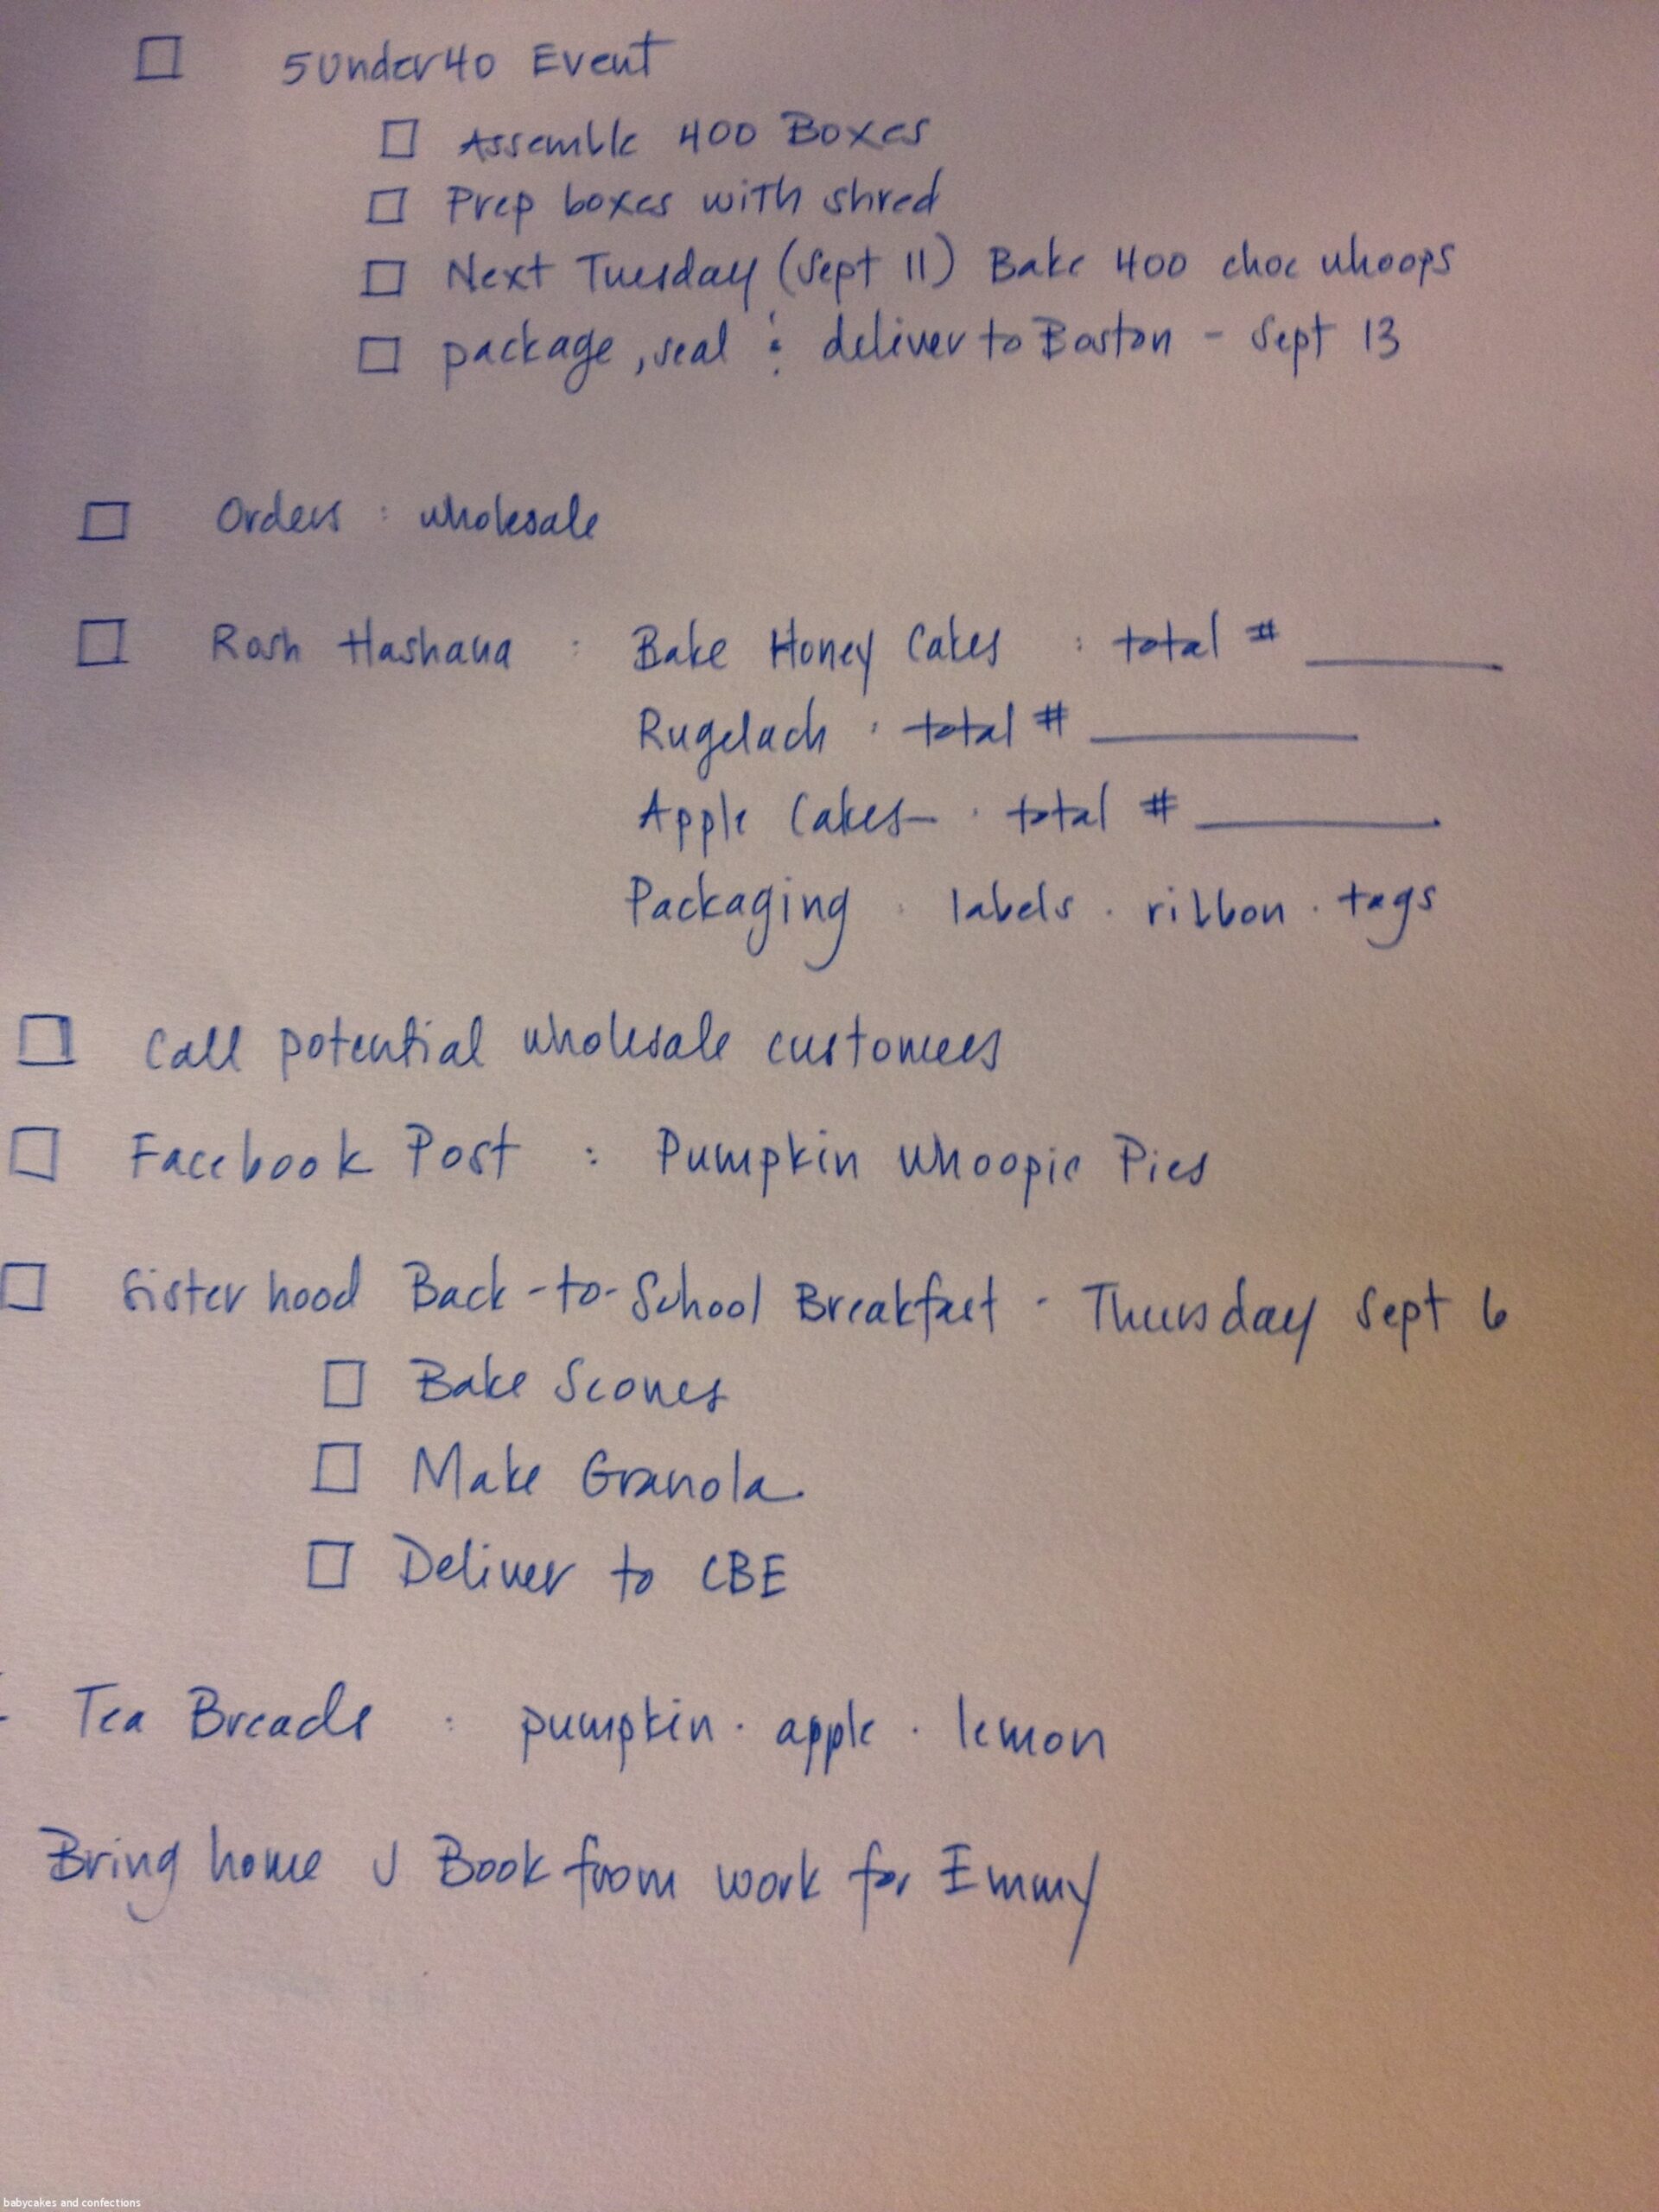 5Under40 Event
Assemble 400 Boxes
Prep boxes with shred
Next Tuesday (Sept 11) Bake 400 choc whoops
package, seal & deliver to Boston - Sept 13
Orders : wholesale
Rosh Hashana : Bake Honey Cakes : total # ____
Rugelach · total # ____
Apple Cakes · total # ____
Packaging · labels · ribbon · tags
Call potential wholesale customers
Facebook Post : Pumpkin Whoopie Pies
Sisterhood Back-to-School Breakfast - Thursday Sept 6
Bake Scones
Make Granola
Deliver to CBE
Tea Breads : pumpkin · apple · lemon
Bring home J Book from work for Emmy
babycakes and confections